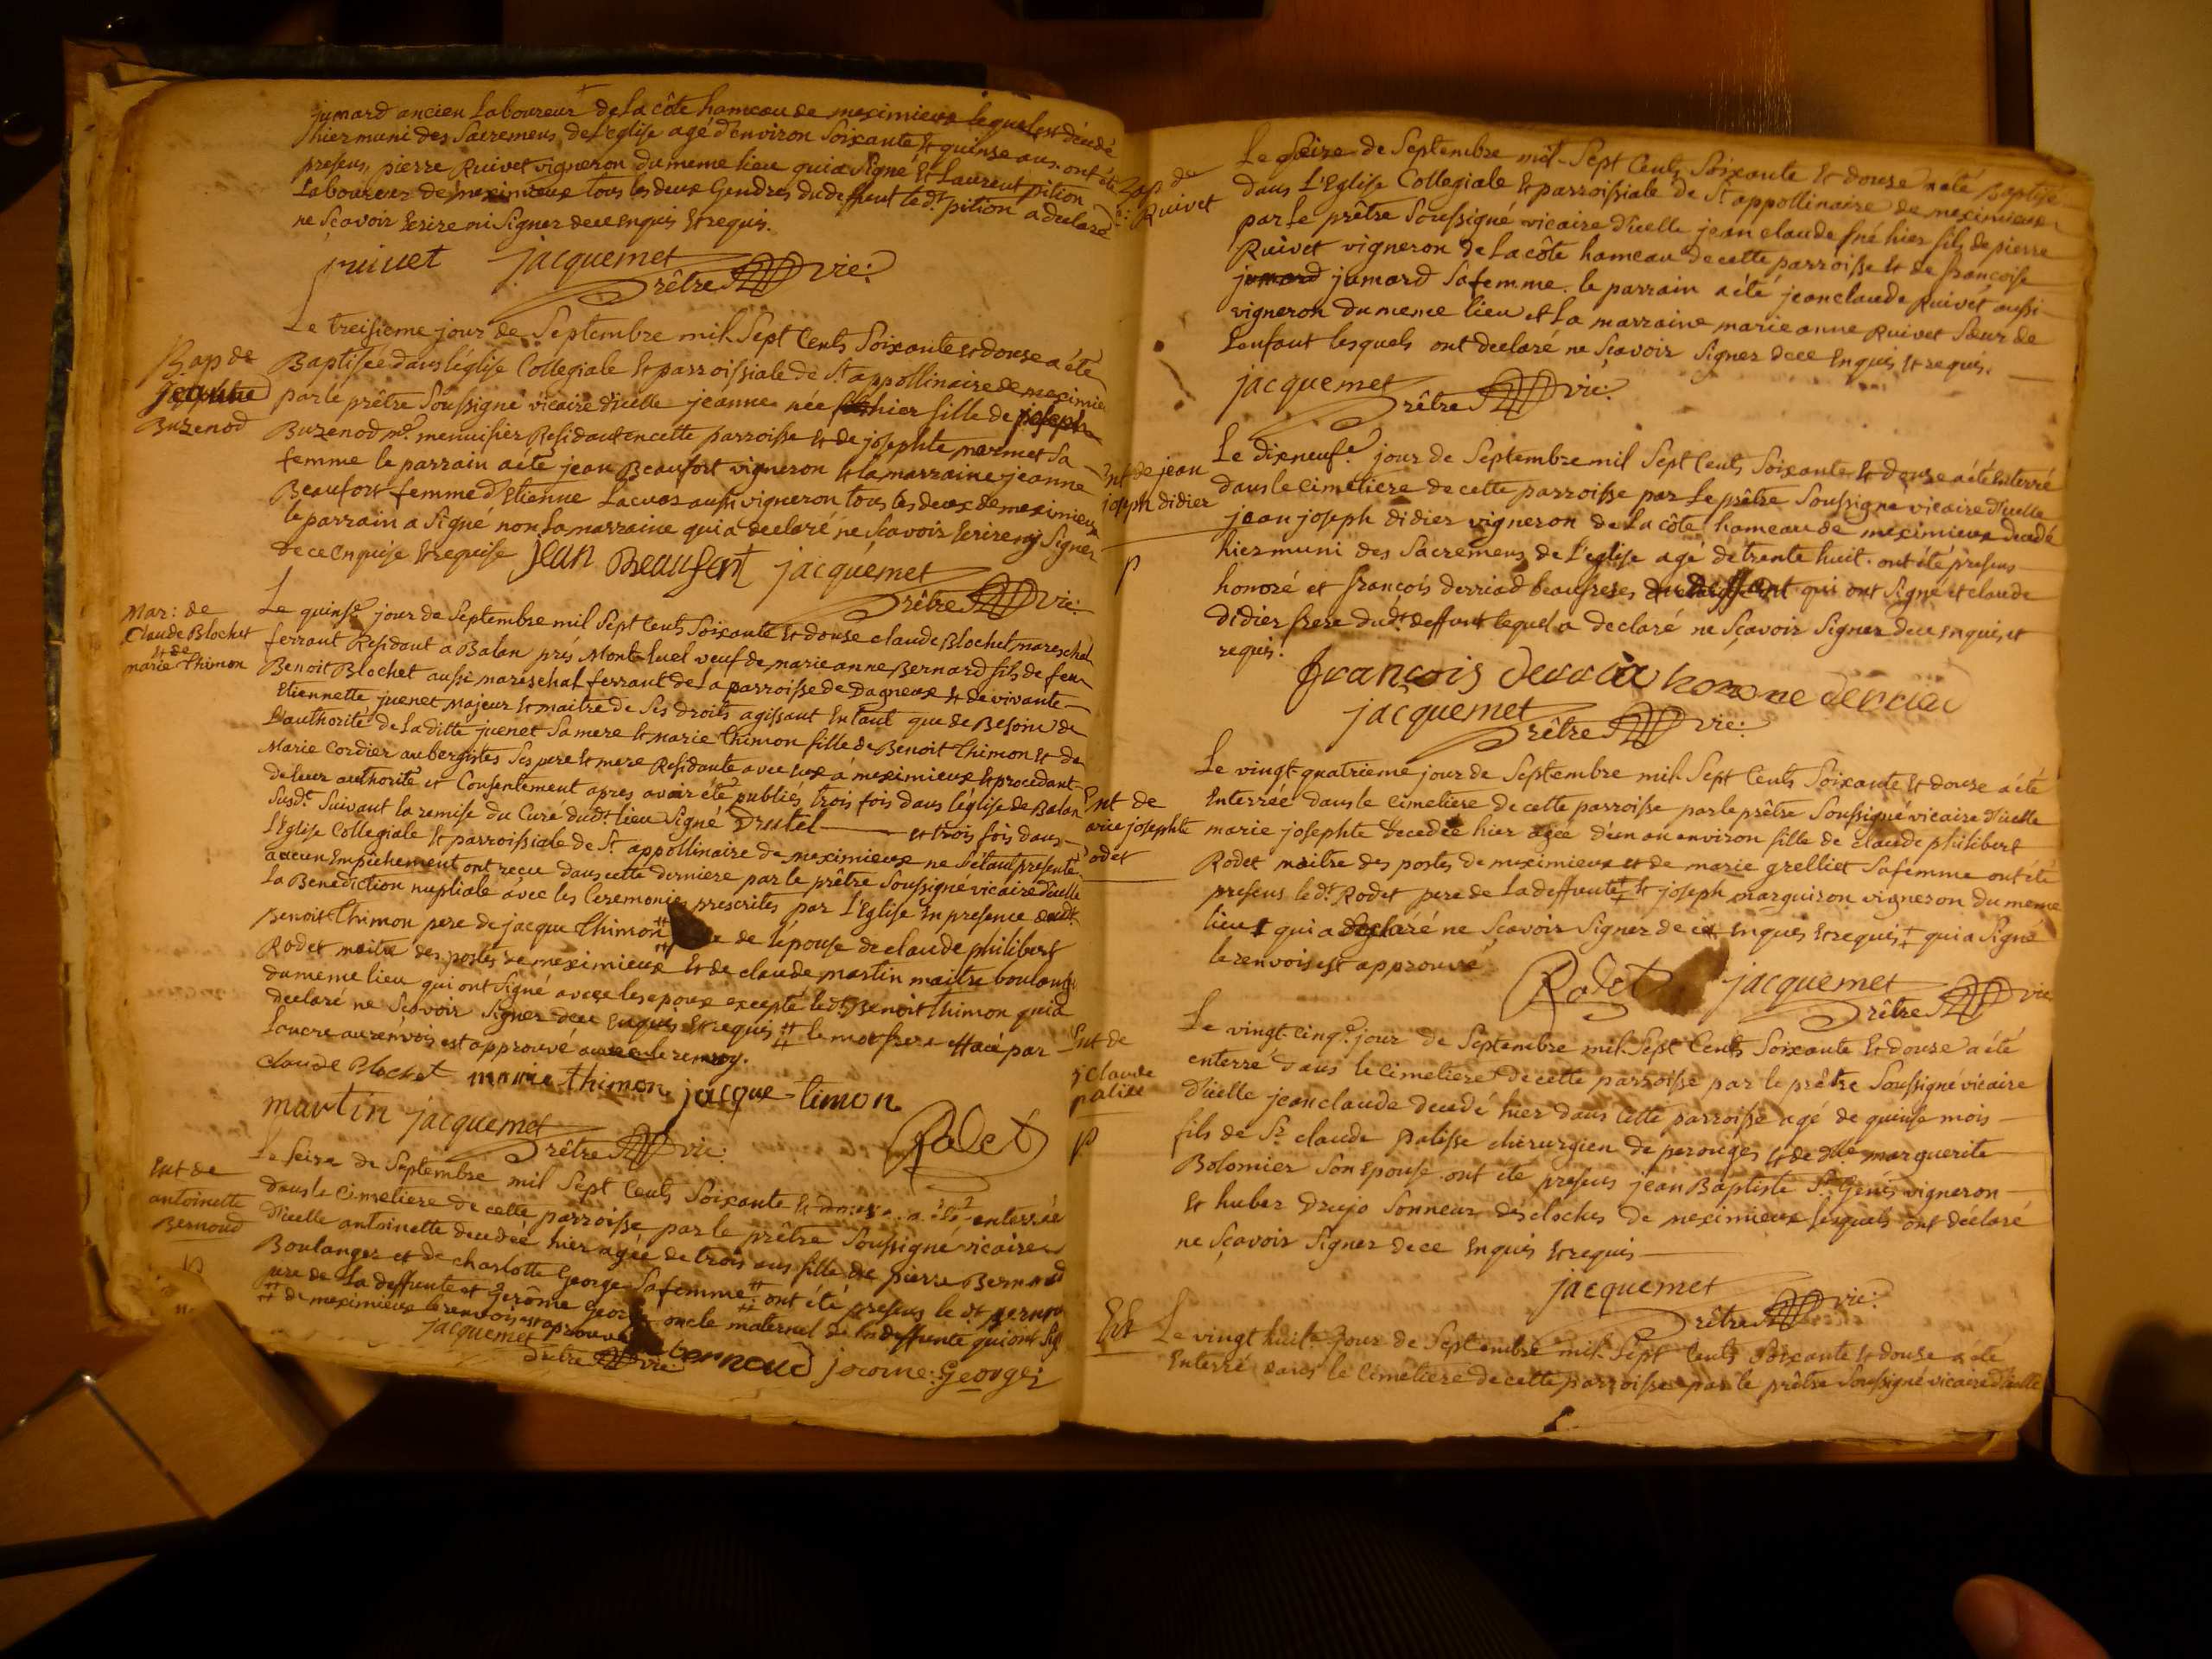 jumard ancien Laboureur de la côte hameau de meximieux lequel est décédé
hier muni des Sacremens de l'eglise agé d'environ Soixante et quinse ans. ont été
presens, pierre Ruivet vigneron du meme lieu qui a Signé et Laurent pition
Laboureur de meximieux tous les deux Gendres du deffunt le dt pition a declaré
ne Scavoir Ecrire ni Signer de ce enquis et requis.
ruivet jacquemet
prêtre vic:
Bap de
jeanne
Buzenod
Le treisieme jour de Septembre mil Sept Cents Soixante et douse a été
Baptisée dans l'église Collegiale et parroissiale de St appollinaire de meximie
par le prêtre Soussigné vicaire d'icelle jeanne née hier fille de joseph
Buzenod me menuisier Residant en cette parroisse et de josephte mermet Sa
femme le parrain a été jean Beaufort vigneron et la marraine jeanne
Beaufort femme d'Etienne Lacuas aussi vigneron tous les deux de meximieux
le parrain a Signé non La marraine qui a declaré ne Scavoir Ecrire ny Signer
de ce enquise et requise jean Beaufort jacquemet
prêtre vic:
Mar: de
Claude Blochet
et de
marie Thimon
Le quinse jour de Septembre mil Sept Cents Soixante et douse claude Blochet mareschal
ferrant Residant a Balan prés Montluel veuf de marie anne Bernard fils de feu
Benoit Blochet aussi mareschal ferrant de La parroisse de Dagneux et de vivante
Etiennette juenet Majeur et maitre de Ses droits agissant En tant que de Besoin de
L'authorité de La ditte juenet Sa mere et marie Thimon fille de Benoit Thimon et de
Marie Cordier aubergistes Ses pere et mere Residante avec eux a meximieux et procedant
de leur authorité et Consentement apres avoir été publiés trois fois dans l'église de Balan
Susdt Suivant la remise du Curé dudt lieu Signé Drutel et trois fois dans
L'Eglise Collegiale et parroissiale de St appollinaire de meximieux ne S'étant presenté
aucun Empêchement ont reçu dans cette derniere par le prêtre Soussigné vicaire d'icelle
La Benediction nuptiale avec les Ceremonies prescrites par L'Eglise En presence dudt
Benoit Thimon pere de jacque Thimon de l'épouse de claude philibert
Rodet maitre des postes de meximieux et de claude martin maitre boulanger
du meme lieu qui ont Signé avec les epoux excepté ledt Benoit Thimon qui a
declaré ne Scavoir Signer de ce enquis et requis le mot frere effacé par
L'ancre au renvois est approuvé
Claude Blochet marie thimon jacque timon
martin jacquemet Rodet
prêtre vic:
Ent de
antoinette
Bernoud
p
Le Seise de Septembre mil Sept Cents Soixante et douse a été enterrée
dans le cimetiere de cette parroisse par le prêtre Soussigné vicaire
d'icelle antoinette decedée hier agée de trois ans fille de pierre Bernoud
Boulanger et de charlotte George Sa femme ont été presens le dt Bernoud
pere de la deffunte et Gerôme George oncle maternel de la deffunte qui ont Sig
de meximieux le renvois est approuvé
jacquemet bernoud jerome: George
prêtre vic:
Bap de
Ruivet
Le Seise de Septembre mil Sept Cents Soixante et douse a été Baptisé
dans L'Eglise Collegiale et parroissiale de St appollinaire de meximieux
par Le prêtre Soussigné vicaire d'icelle jean claude né hier fils de pierre
Ruivet vigneron de La côte hameau de cette parroisse et de françoise
jumard jumard Sa femme. le parrain a été jean claude Ruivet aussi
vigneron du meme lieu et La marraine marie anne Ruivet Sœur de
L'enfant lesquels ont declaré ne Scavoir Signer de ce Enquis et requis.
jacquemet
prêtre vic:
Ent de jean
joseph didier
p
Le dixneufe jour de Septembre mil Sept Cents Soixante et douse a été Enterré
dans le cimetiere de cette parroisse par Le prêtre Soussigné vicaire d'icelle
jean joseph didier vigneron de La côte hameau de meximieux decedé
hier muni des Sacremens de L'eglise agé de trente huit. ont été presens
honoré et françois derriad beaufreres du deffunt qui ont Signé et claude
Didier frere dudt deffunt lequel a declaré ne Scavoir Signer de ce enquis et
requis.
françois derriad honoré derriad
jacquemet
prêtre vic:
Ent de
arie josephte
odet
Le vingt quatrieme jour de Septembre mil Sept Cents Soixante et douse a été
Enterrée dans le cimetiere de cette parroisse par le prêtre Soussigné vicaire d'icelle
marie josephte decedée hier agée d'un an environ fille de claude philibert
Rodet maitre des postes de meximieux et de marie grelliet Sa femme ont été
presens le dt Rodet pere de La deffunte et joseph marguiron vigneron du meme
lieu qui a declaré ne Scavoir Signer de ce enquis et requis qui a Signé
le renvois est approuvé
Rodet jacquemet
prêtre vic
Ent de
claude
palisse
p
Le vingt-cinqe jour de Septembre mil Sept Cents Soixante et douse a été
enterré dans le cimetiere de cette parroisse par le prêtre Soussigné vicaire
d'icelle jean claude decedé hier dans cette parroisse agé de quinse mois
fils de Sr claude Palisse chirurgien de perouges et de dlle marguerite
Bolomier Son epouse ont été presens jean Baptiste St Genis vigneron
et huber Drujo Sonneur des cloches de meximieux lesquels ont déclaré
ne Scavoir Signer de ce Enquis et requis
jacquemet
prêtre vic:
Ent
Le vingt huite jour de Septembre mil Sept Cents Soixante et douse a été
Enterré dans le cimetiere de cette parroisse par le prêtre Soussigné vicaire d'icelle